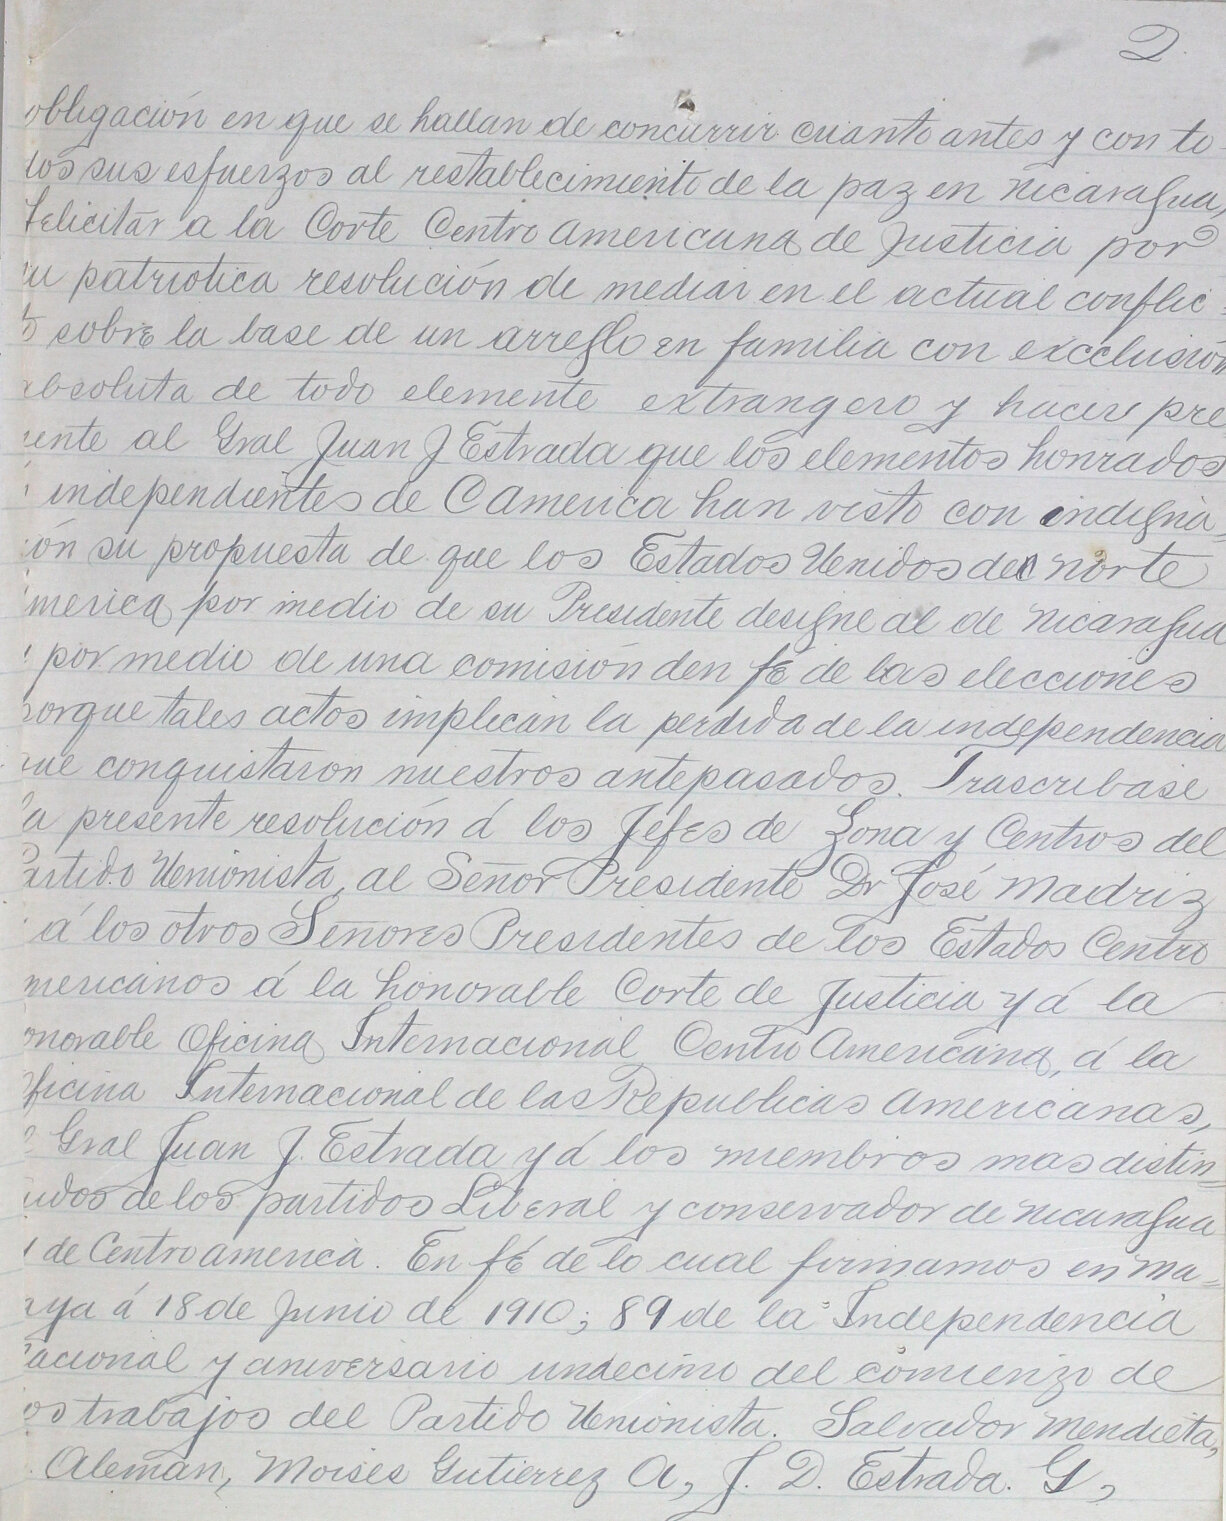 2.
obligación en que se hallan de concurrir cuanto antes y con to-
dos sus esfuerzos al restablecimiento de la paz en Nicaragua,
felicitar a la Corte Centro americana de Justicia por
su patriotica resolución de mediar en el actual conflic-
to sobre la base de un arreglo en familia con excclusión
absoluta de todo elemente extrangero y hacer pre
sente al Gral Juan J Estrada que los elementos honrados
independientes de C America han visto con indigna=
ión su propuesta de que los Estados Unidos del Norte
merica, por medio de su Presidente designe al de Nicaragua
por medio de una comisión den fé de las elecciones
porque tales actos implican la perdida de la independencia
que conquistaron nuestros antepasados. Trascribase
la presente resolución á los Jefes de Zona y Centros del
Partido Unionista, al Señor Presidente Dr José Madriz
á los otros Señores Presidentes de los Estados Centro
mericanos á la honorable Corte de Justicia y á la
onorable Oficina Internacional Centro Americana, á la
oficina Internacional de las Republicas Americanas,
l Gral Juan J. Estrada y á los miembros mas distin=
uidos de los partidos Liberal y conservador de Nicaragua
y de Centroamerica. En fé de lo cual firmamos en Ma=
aya á 18 de Junio de 1910; 89 de la Independencia
acional y aniversario undecimo del comienzo de
os trabajos del Partido Unionista. Salvador Mendieta,
Alemán, Moises Gutierrez A, J. D. Estrada. G,